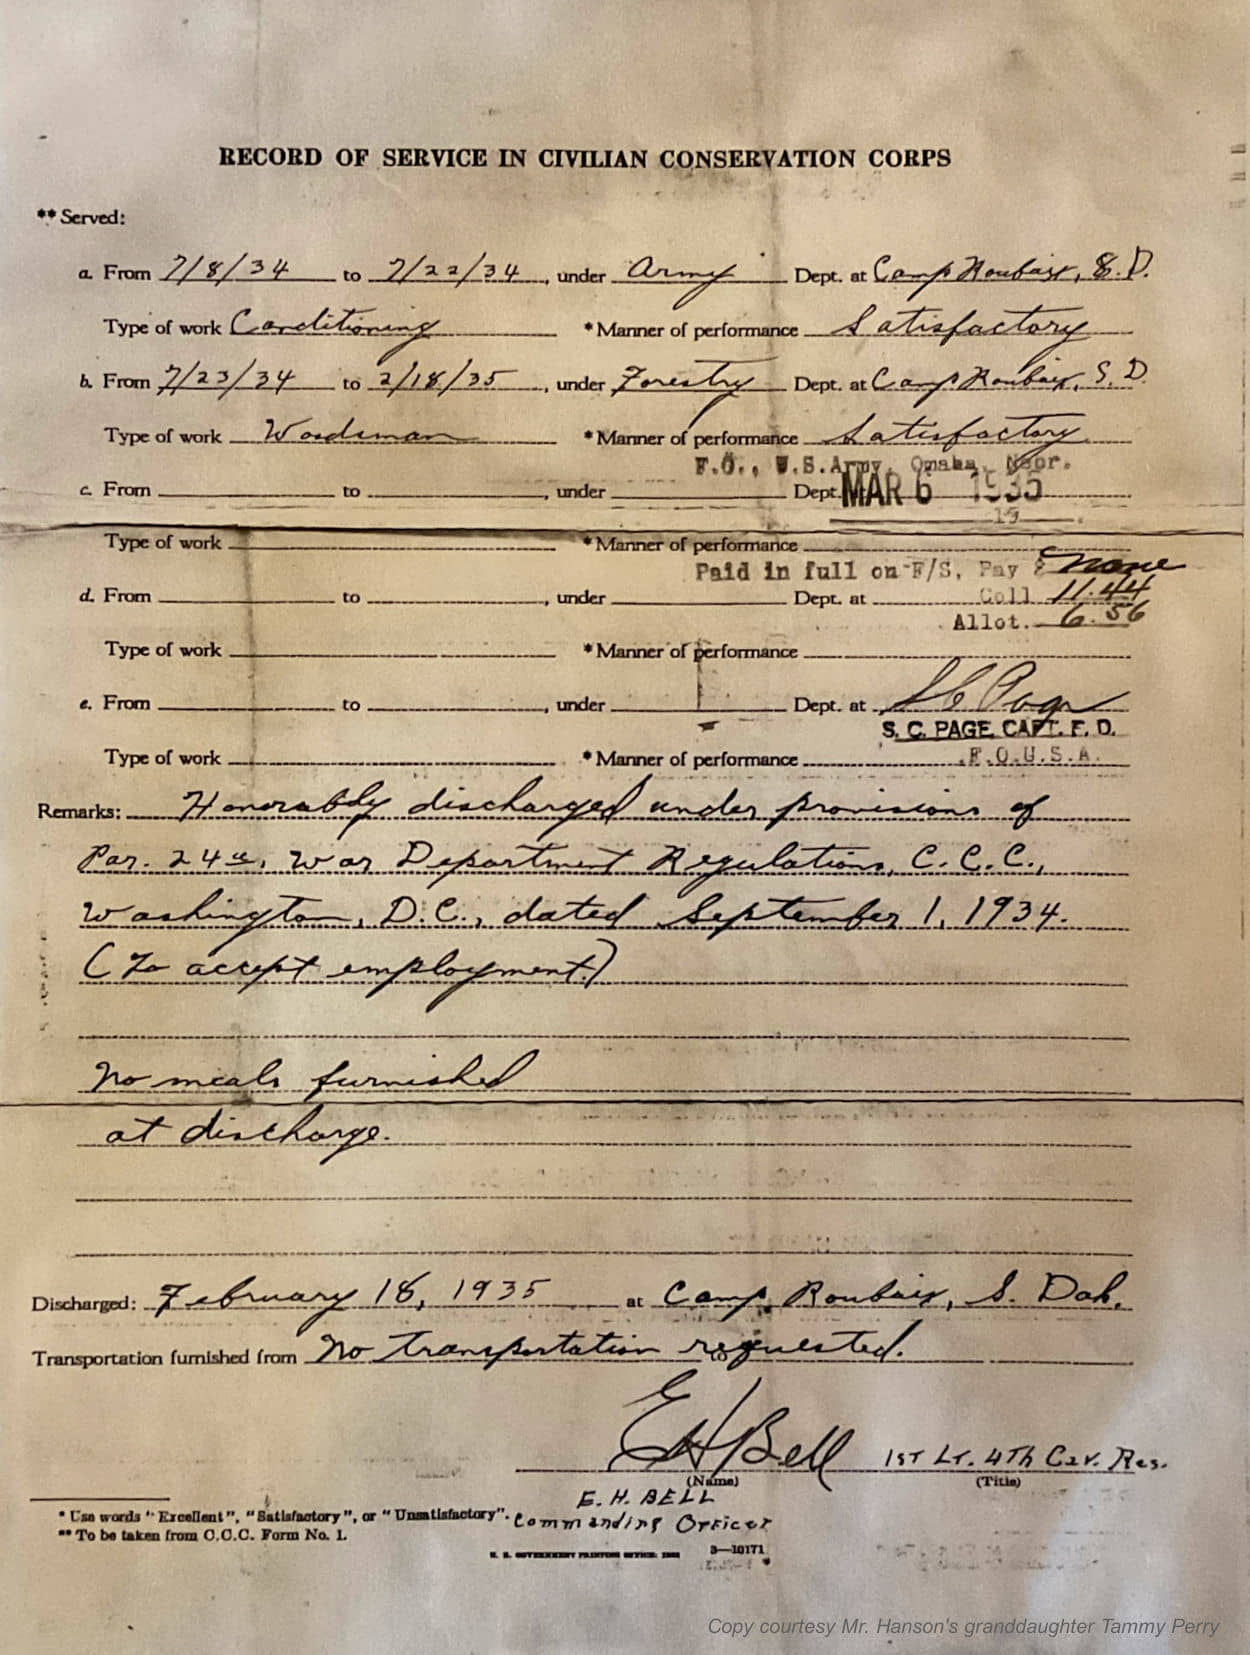 RECORD OF SERVICE IN CIVILIAN CONSERVATION CORPS
** Served:
a. From 7/8/34 to 7/22/34, under Army Dept. at Camp Roubaix, S.D.
Type of work Conditioning * Manner of performance Satisfactory
b. From 7/23/34 to 2/18/35, under Forestry Dept. at Camp Roubaix, S.D.
Type of work Woodsman * Manner of performance Satisfactory
F.O., U.S.Army, Omaha, Nebr.
c. From to , under Dept. MAR 6 1935
19
Type of work * Manner of performance
Paid in full on F/S, Pay $ none
d. From to , under Dept. at Coll 11.44
Allot. 6.56
Type of work * Manner of performance
e. From to , under Dept. at S C Page
S. C. PAGE, CAPT. F. D.
Type of work * Manner of performance F.O.U.S.A.
Remarks: Honorably discharged under provisions of
Par. 24, War Department Regulations, C.C.C.,
Washington, D.C., dated September 1, 1934.
(To accept employment.)
No meals furnished
at discharge.
Discharged: February 18, 1935 at Camp Roubaix, S. Dak.
Transportation furnished from No transportation requested.
E H Bell 1st Lt. 4th Cav. Res.
(Name) (Title)
E. H. BELL
Commanding Officer
* Use words "Excellent", "Satisfactory", or "Unsatisfactory".
** To be taken from C.C.C. Form No. 1.
U. S. GOVERNMENT PRINTING OFFICE: 3—10171
Copy courtesy Mr. Hanson's granddaughter Tammy Perry